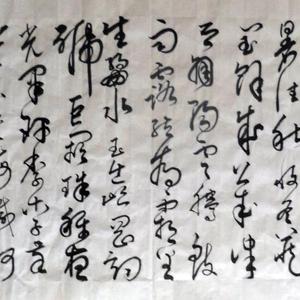 暑往秋收冬藏
閏餘成歲律
呂調陽雲騰致
雨露結為霜金
生麗水玉出崑岡劍
號巨闕珠稱夜
光果珍李柰菜
重芥薑海鹹河